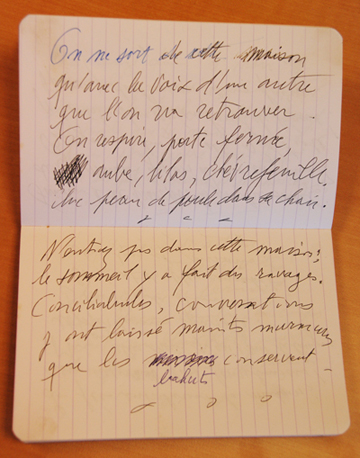 On ne sort de cette maison
qu'avec la voix d'une autre
que l'on va retrouver.
On respire, porte fermée,
aube, lilas, chèvrefeuille.
Une peau de poule dans sa chair.
N'entrez pas dans cette maison,
le sommeil y a fait des ravages.
Conciliabules, conversations
y ont laissé maints murmures
que les conservent